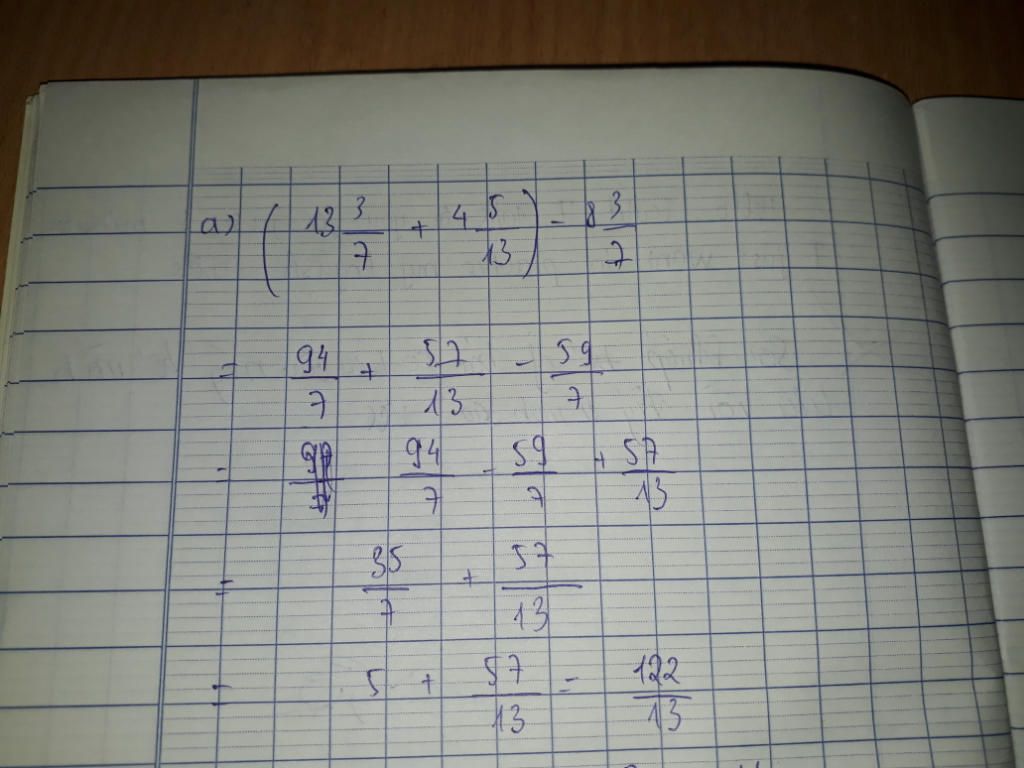 a) (13 3/7 + 4 5/13) - 8 3/7
= 94/7 + 57/13 - 59/7
= 94/7 - 59/7 + 57/13
= 35/7 + 57/13
= 5 + 57/13 = 122/13